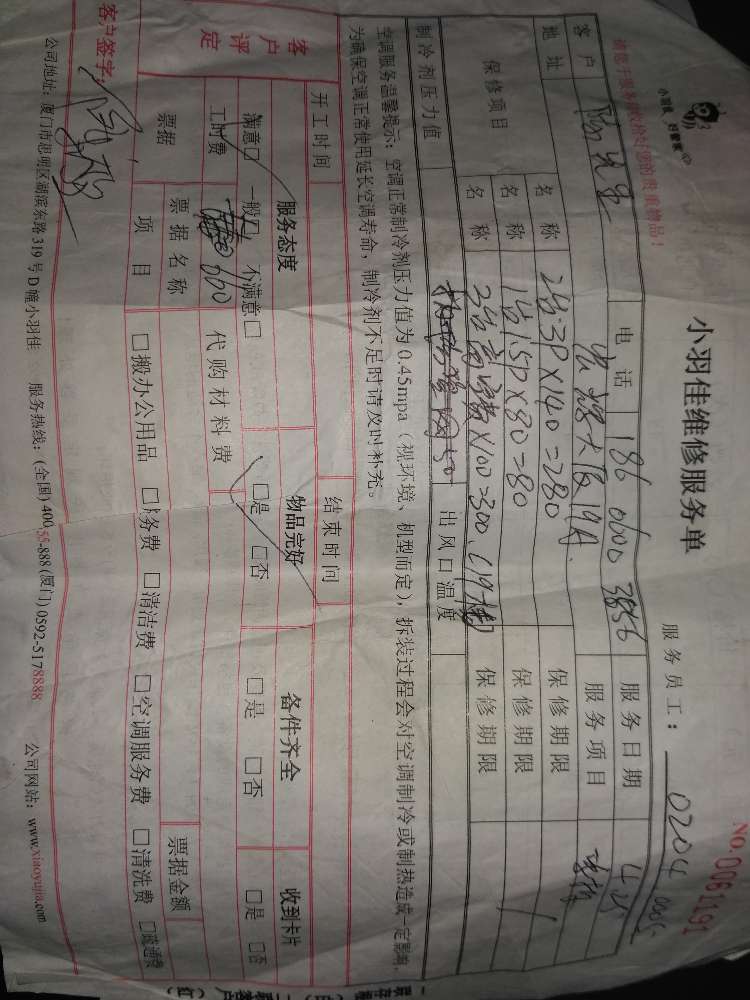 小羽佳 好管家
请您于服务前收拾好您的贵重物品!
小羽佳维修服务单
NO. 0081491
服务员工: 0204
客户 陈先生 电话 186 0600 3856 服务日期
地址 服务项目
保修项目 名称 2台3P×140=280 保修期限
名称 1台1.5P×80=80 保修期限
名称 3台高空费×100=300 保修期限
制冷剂压力值 出风口温度
空调服务温馨提示:空调正常制冷剂压力值为0.45mpa(视环境、机型而定),拆装过程会对空调制冷或制热造成一定影响,
为确保空调正常使用延长空调寿命,制冷剂不足时请及时补充。
开工时间 结束时间
客户评定 服务态度 物品完好 备件齐全 收到卡片
满意□ 一般□ 不满意□ □是 □否 □是 □否 □是 □否
工时费 660 代购材料费
票据 票据名称 票据金额
项目 □搬办公用品 □服务费 □清洁费 □空调服务费 □清洗费 □疏通费
客户签字:
公司地址:厦门市思明区湖滨东路319号D幢小羽佳 服务热线:(全国)400-55-888(厦门)0592-5178888 公司网站:www.xiaoyujia.com